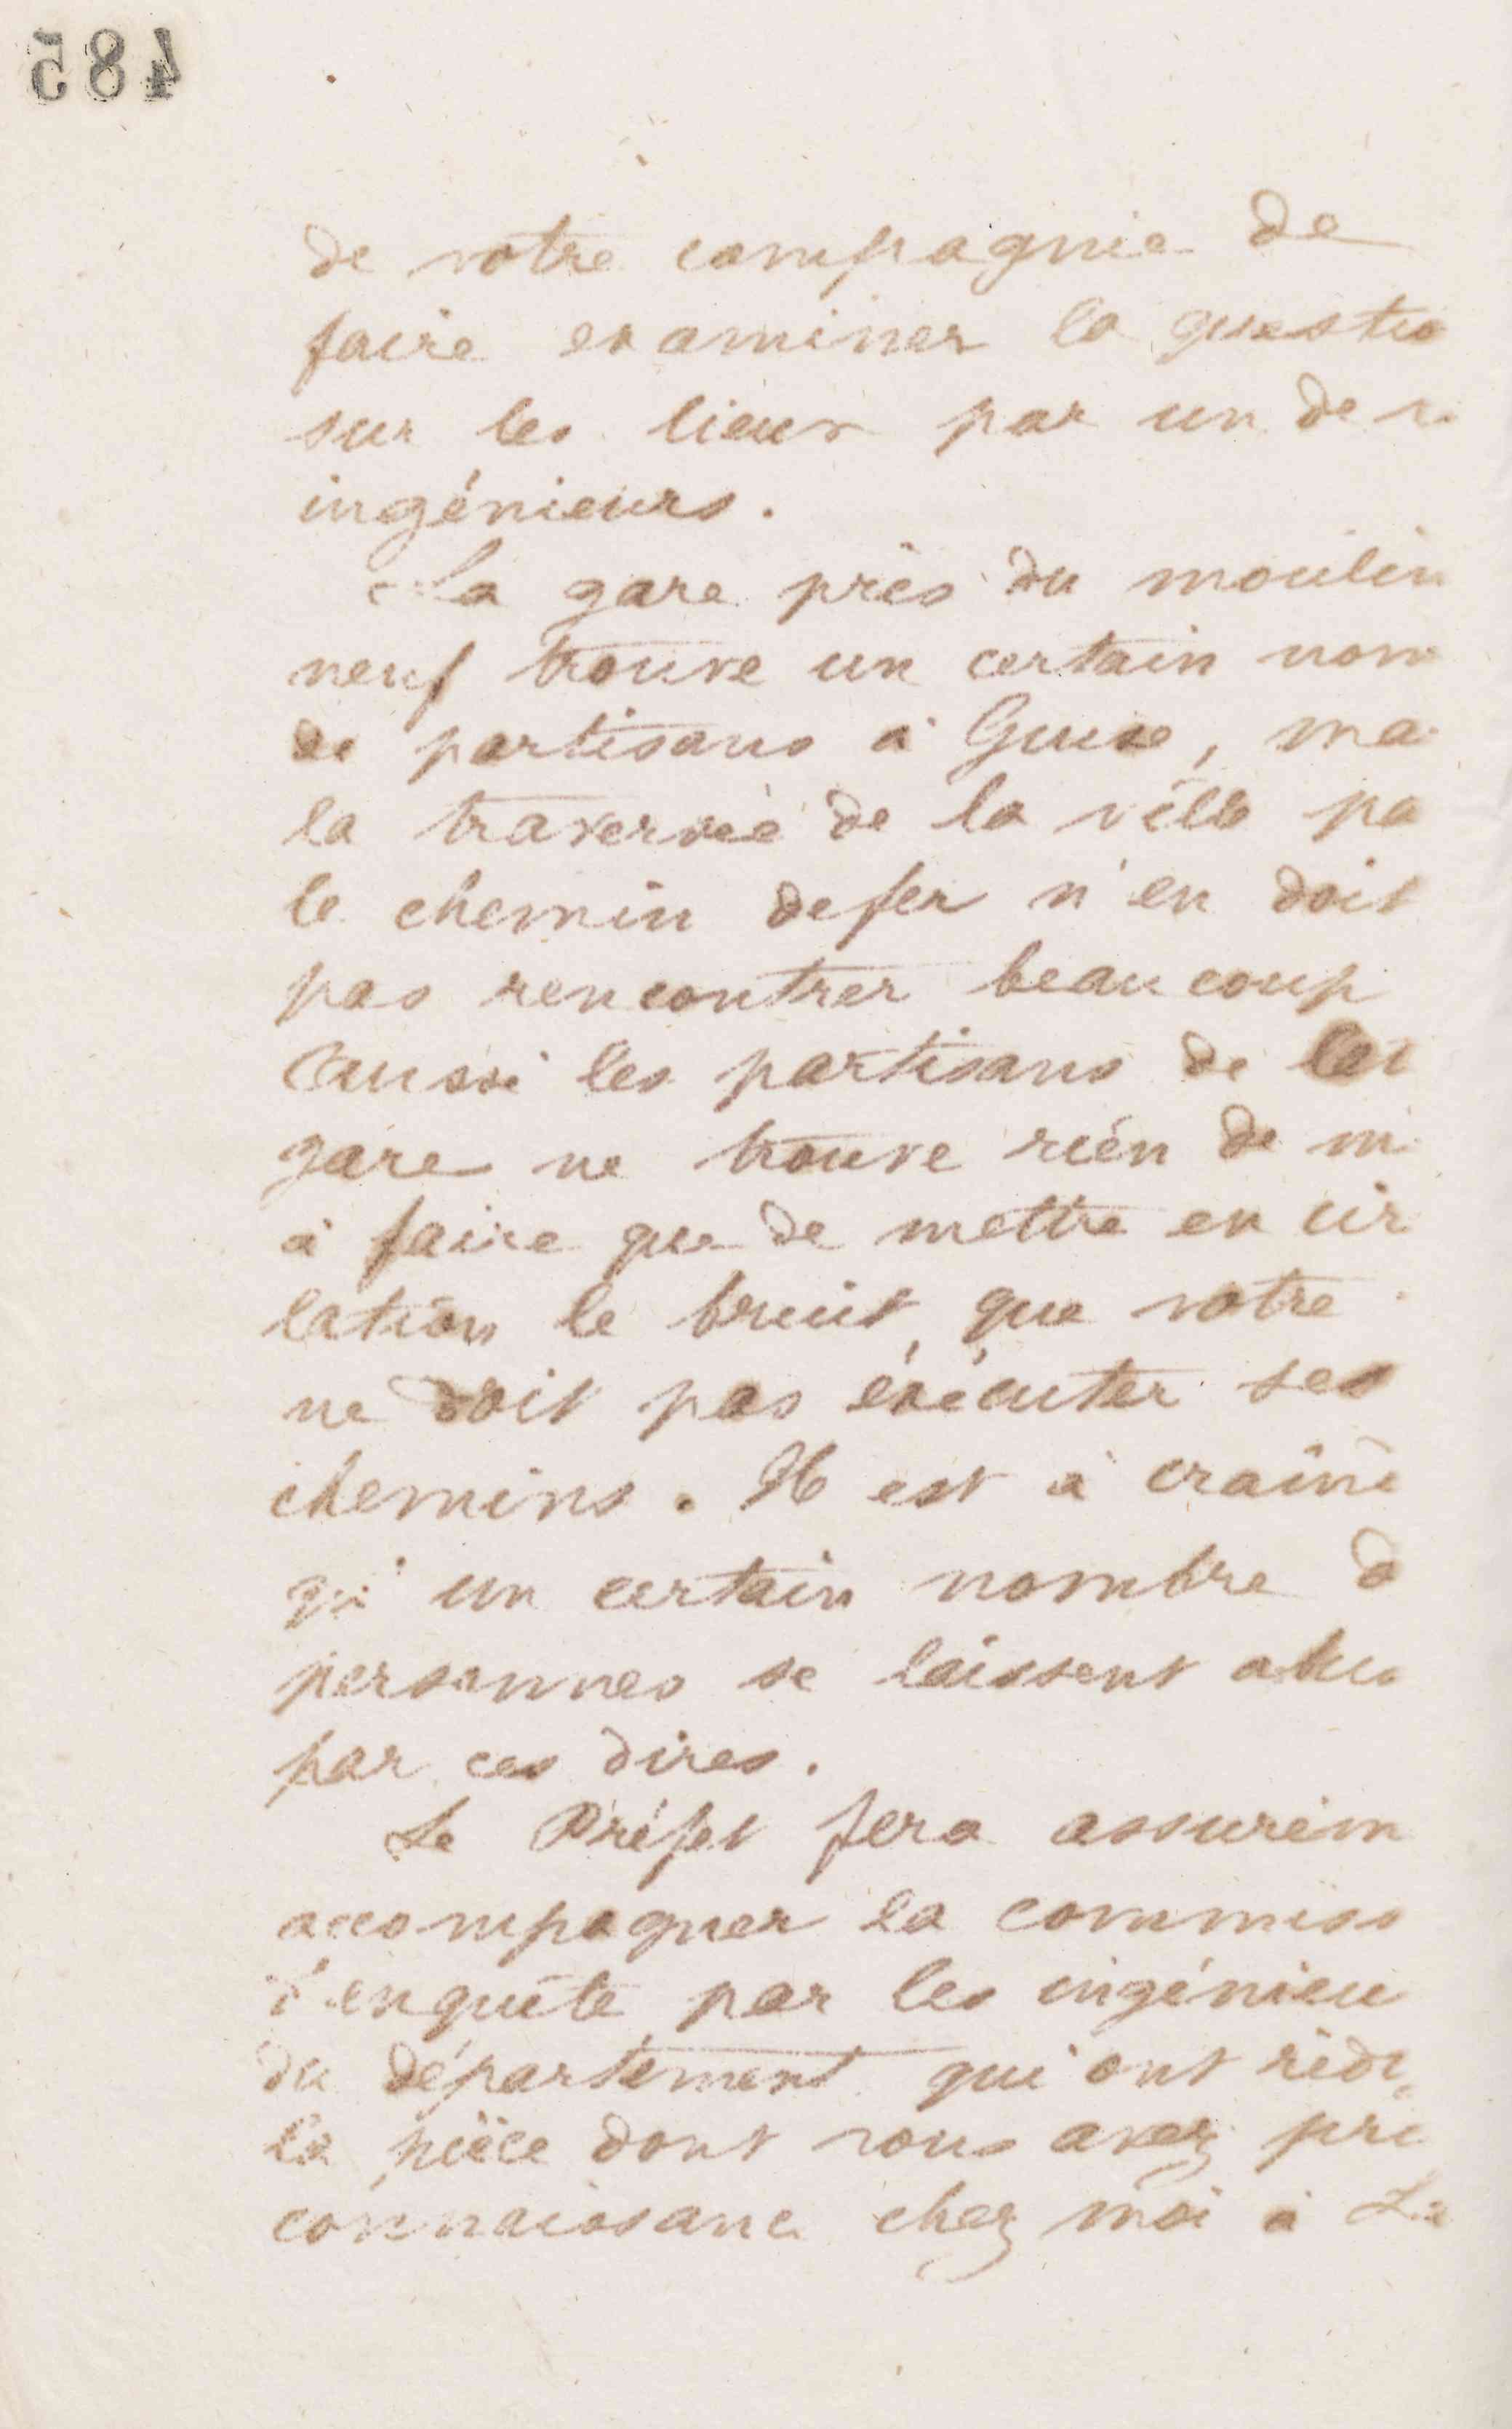 485
de votre compagnie de
faire examiner la questio
sur les lieux par un de
ingénieurs.
La gare près du moulin
neuf trouve un certain nom
de partisans à Guise, ma
la traversée de la ville pa
le chemin de fer n'en doit
pas rencontrer beaucoup
Aussi les partisans de
gare ne trouve rien de m
à faire que de mettre en cir
lation le bruit, que votre
ne doit pas éxécuter ses
chemins. Il est à crain
qu'un certain nombre d
personnes se laissent abu
par ces dires.
Le Préfet fera assurém
accompagner la commiss
d'enquête par les ingénieu
du département qui ont rédi
la pièce dont vous avez pri
connaissance chez moi à